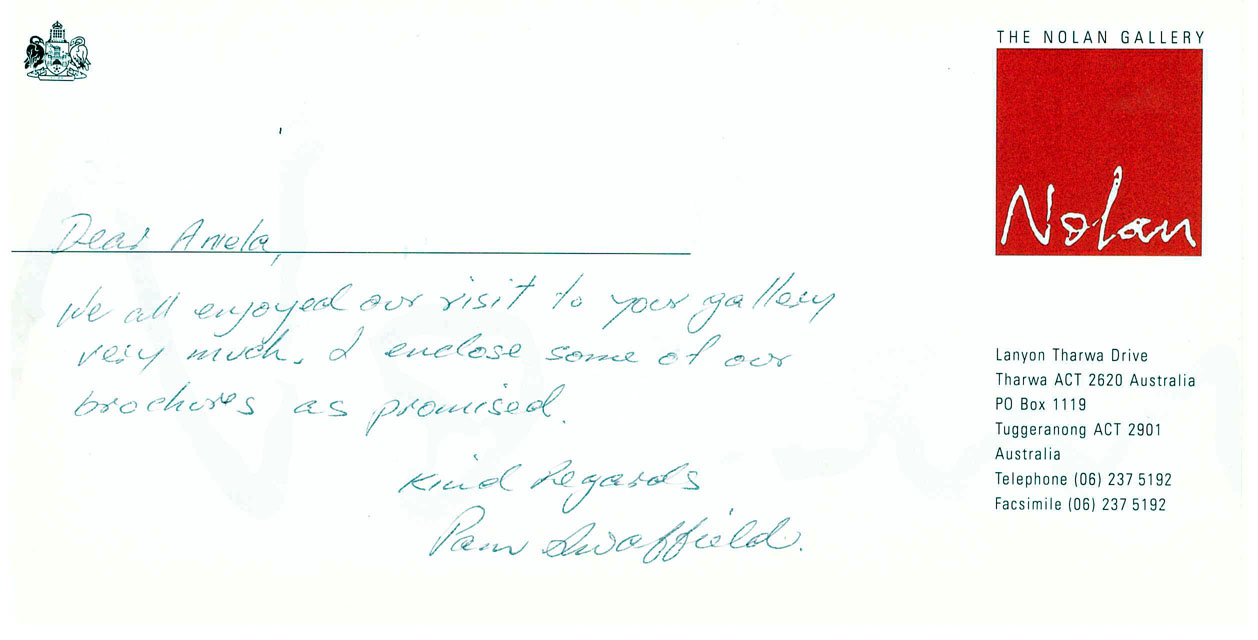 THE NOLAN GALLERY
Nolan
Dear Anela,
We all enjoyed our visit to your gallery
very much. I enclose some of our
brochures as promised.
Kind Regards
Pam Swaffield.
Lanyon Tharwa Drive
Tharwa ACT 2620 Australia
PO Box 1119
Tuggeranong ACT 2901
Australia
Telephone (06) 237 5192
Facsimile (06) 237 5192